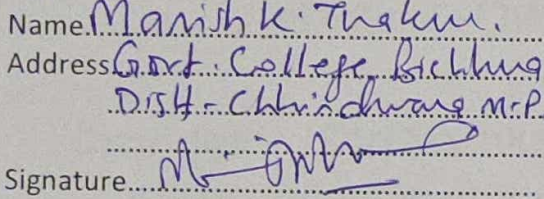 Name Manish K. Thakur.
Address Govt. College, Bichhua
Distt - Chhindwara M.P.
Signature